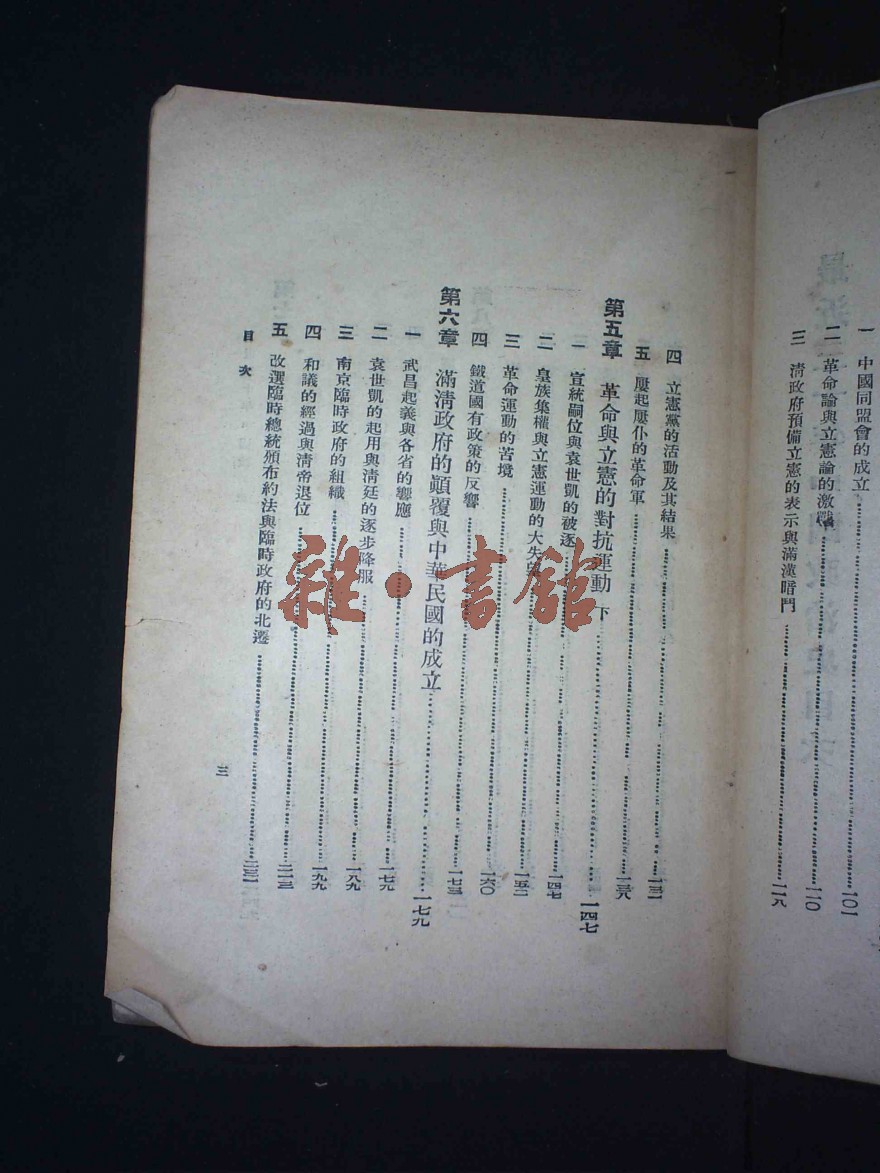 一 中國同盟會的成立……一〇一
二 革命論與立憲論的激戰……一一〇
三 清政府預備立憲的表示與滿漢暗鬥……一一八
四 立憲黨的活動及其結果……一三一
五 屢起屢仆的革命軍……一三八
第五章 革命與立憲的對抗運動 下……一四七
一 宣統嗣位與袁世凱的被逐……一四七
二 皇族集權與立憲運動的大失……一五二
三 革命運動的苦境……一六〇
四 鐵道國有政策的反響……一七三
第六章 滿清政府的顛覆與中華民國的成立……一七九
一 武昌起義與各省的響應……一七九
二 袁世凱的起用與清廷的逐步降服……一八九
三 南京臨時政府的組織……一九九
四 和議的經過與清帝退位……二一三
五 改選臨時總統頒布約法與臨時政府的北遷……二三一
目次
三
雜·書館